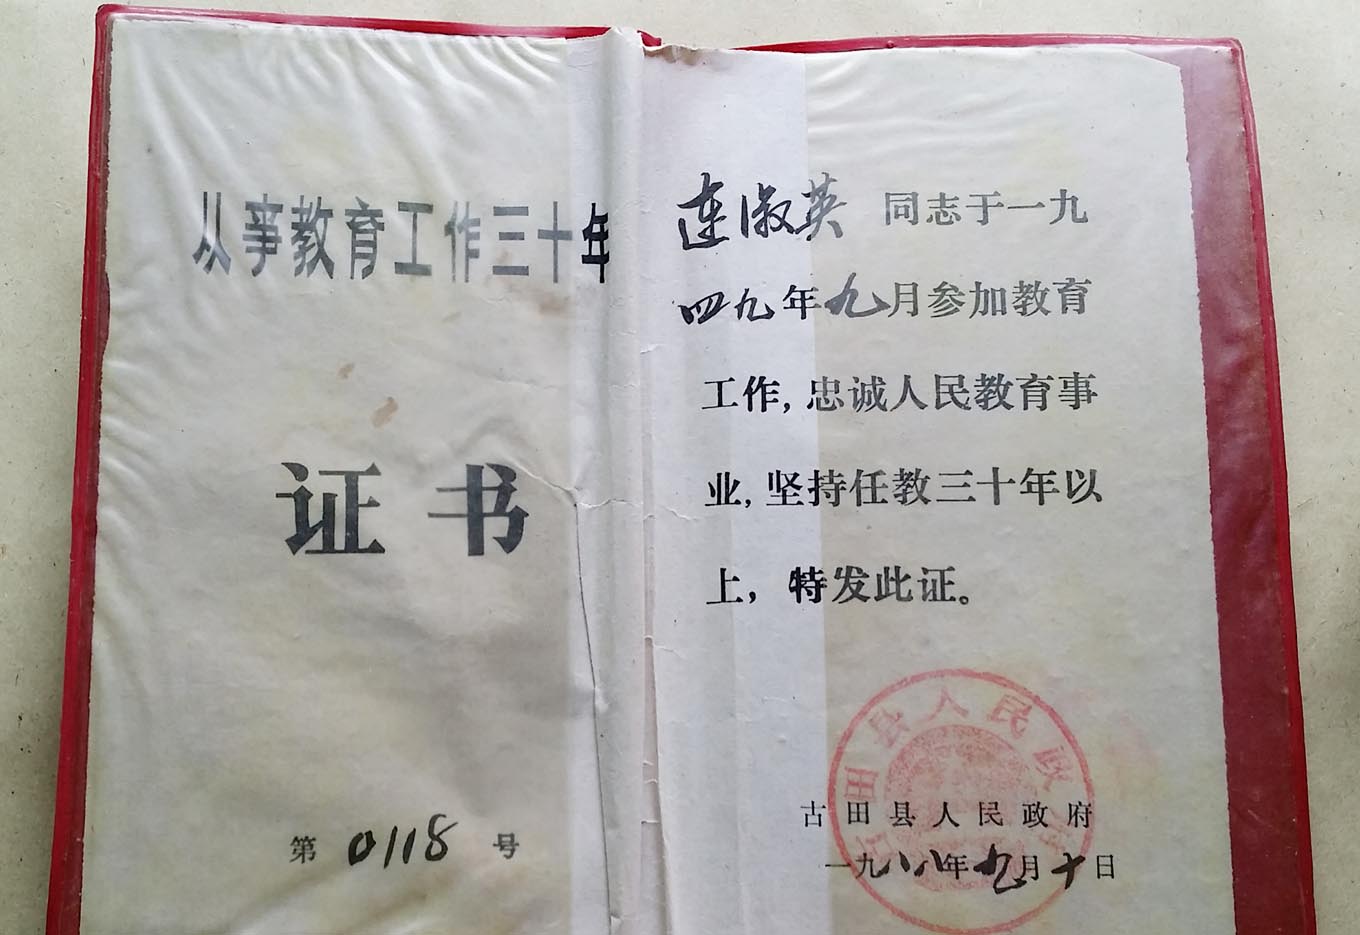 从事教育工作三十年
证书
第0118号
连淑英 同志于一九
四九年九月参加教育
工作,忠诚人民教育事
业,坚持任教三十年以
上,特发此证。
古田县人民政府
一九八八年九月十日
古田县人民政府